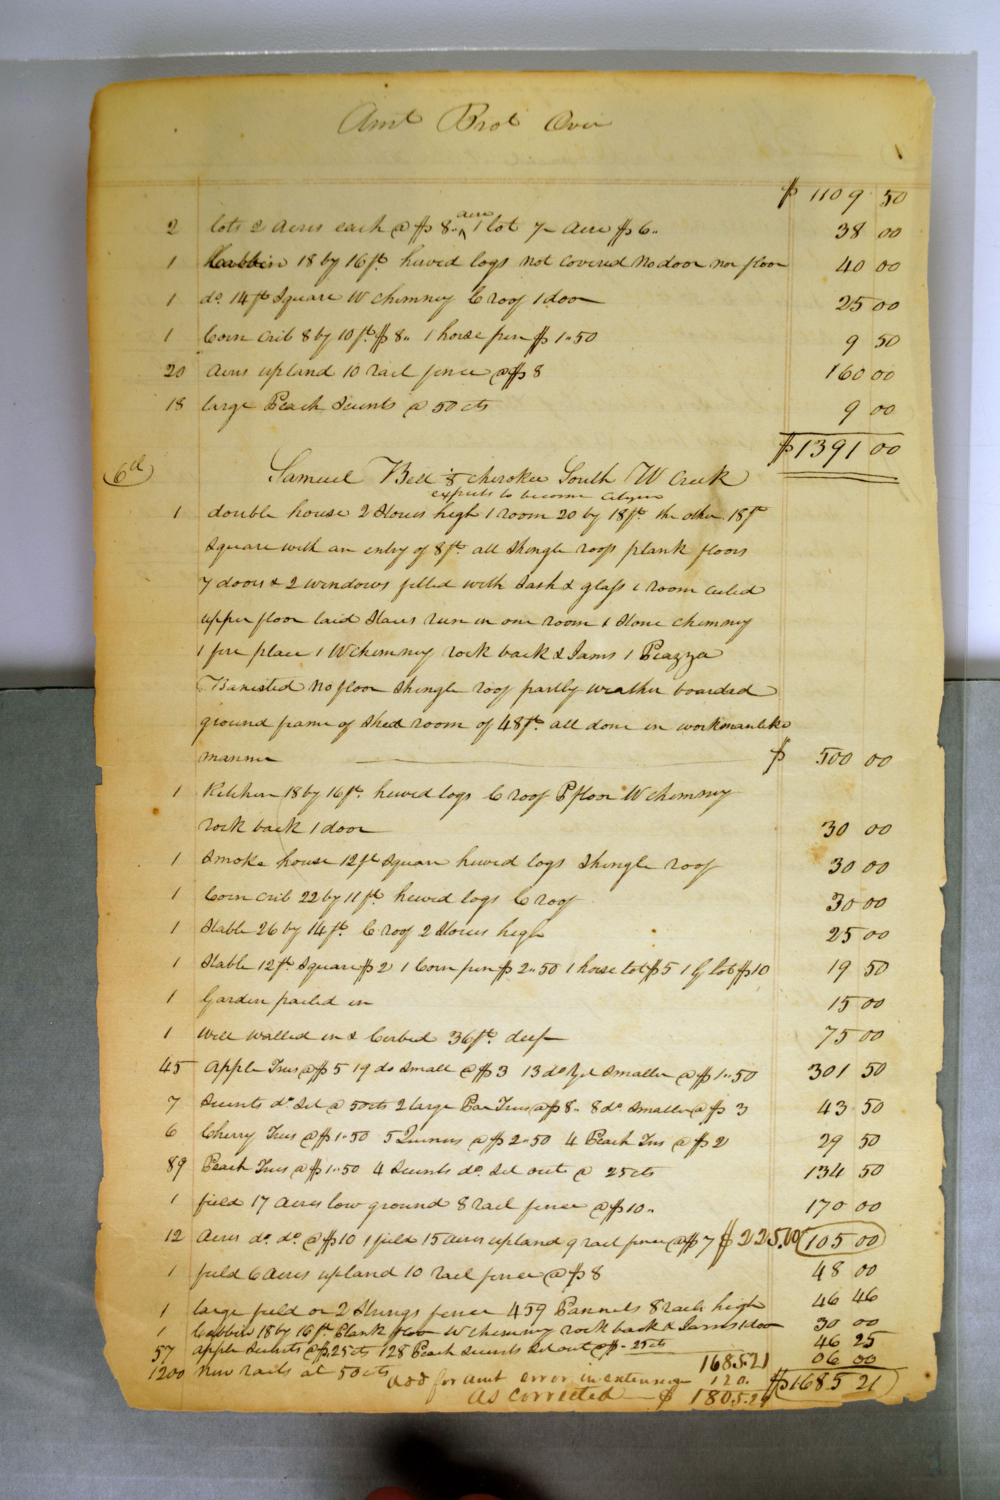 Amt Brot Over
$ 1109 50
2 lots 2 Acres each @ $8.. acre 1 lot 7 Acre $6.. 38 00
1 Cabbin 18 by 16 ft. hewed logs not covered No door nor floor 40 00
1 do. 14 ft Square W Chimney C roof 1 door 25 00
1 Corn Crib 8 by 10 ft. $8.. 1 horse pen $1..50 9 50
20 Acres upland 10 rail fence @ $8 160 00
18 large Peach Scients @ 50 cts 9 00
$1391 00
6th Samuel Bell ⅛ Cherokee South W Creek
expects to become Citizen
1 double house 2 Stories high 1 room 20 by 18 ft. the other 18 ft
Square with an entry of 8 ft. all Shingle roofs plank floors
7 doors & 2 windows filled with Sash & glass 1 room ceiled
upper floor laid Stares run in one room 1 Stone chimney
1 fire place 1 W Chimney rock back & Jams 1 Peazza
Banisted No floor Shingle roof partly weather boarded
ground frame of Shed room of 48 ft. all done in workmanlike
manner $ 500 00
1 Kitchen 18 by 16 ft. hewed logs C roof P floor W chimney
rock back 1 door 30 00
1 Smoke house 12 ft Square hewed logs Shingle roof 30 00
1 Corn Crib 22 by 11 ft. hewed logs C roof 30 00
1 Stable 26 by 14 ft. C roof 2 Stories high 25 00
1 Stable 12 ft. Square $2 1 Corn pen $2..50 1 horse lot $5 1 G lot $10 19 50
1 Garden pailed in 15 00
1 Well walled in & Curbed 36 ft. deep 75 00
45 Apple Trees @ $5 19 do Small @ $3 13 do Yet Smaller @ $1..50 301 50
7 Scients do. Set @ 50 cts 2 large Pear Trees @ $8.. 8 do. Smaller @ $3 43 50
6 Cherry Trees @ $1..50 5 Quinces @ $2..50 4 Peach Trees @ $2 29 50
89 Peach Trees @ $1..50 4 Scients do. Set out @ 25 cts 134 50
1 field 17 Acres low ground 8 rail fence @ $10.. 170 00
12 Acres do. do. @ $10 1 field 15 acres upland 9 rail fence @ $7 $225.00 105 00
1 field 6 Acres upland 10 rail fence @ $8 48 00
1 large field on 2 Strings fence 459 Pannels 8 rails high 46 46
1 Cabbin 18 by 16 ft. Plank floor W chimney rock back & Jams 1 door 30 00
57 apple Scients @ $.25 cts 128 Peach Scients Set out @ $-.25 cts 46 25
1200 New rails at 50 cts 06 00
1685.21 $1685 21
add for amt error in extension 120.
As corrected $ 1805.21